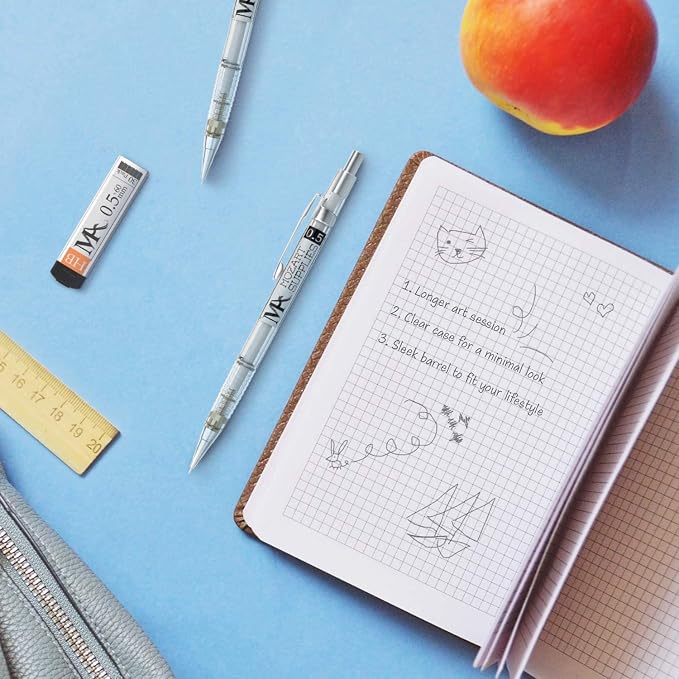 MA
0.5
60
mm
MA
HB
0.5
MOZART
SUPPLIES
MA
15 16 17 18 19 20
1. Longer art session
2. Clear case for a minimal look
3. Sleek barrel to fit your lifestyle